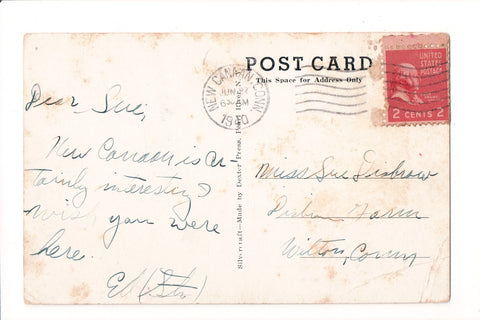 POST CARD
This Space for Address Only
NEW CANAAN, CONN
JUN
6 PM
1940
UNITED
STATES
POSTAGE
2 CENTS 2
Dear Sue,
New Canaan is cer
tainly interesting
wish you were
here.
Ed
Silvercraft—Made by Dexter Press, Pearl River, N.Y.
Miss Sue Disbrow
Farm
Wilton, Conn